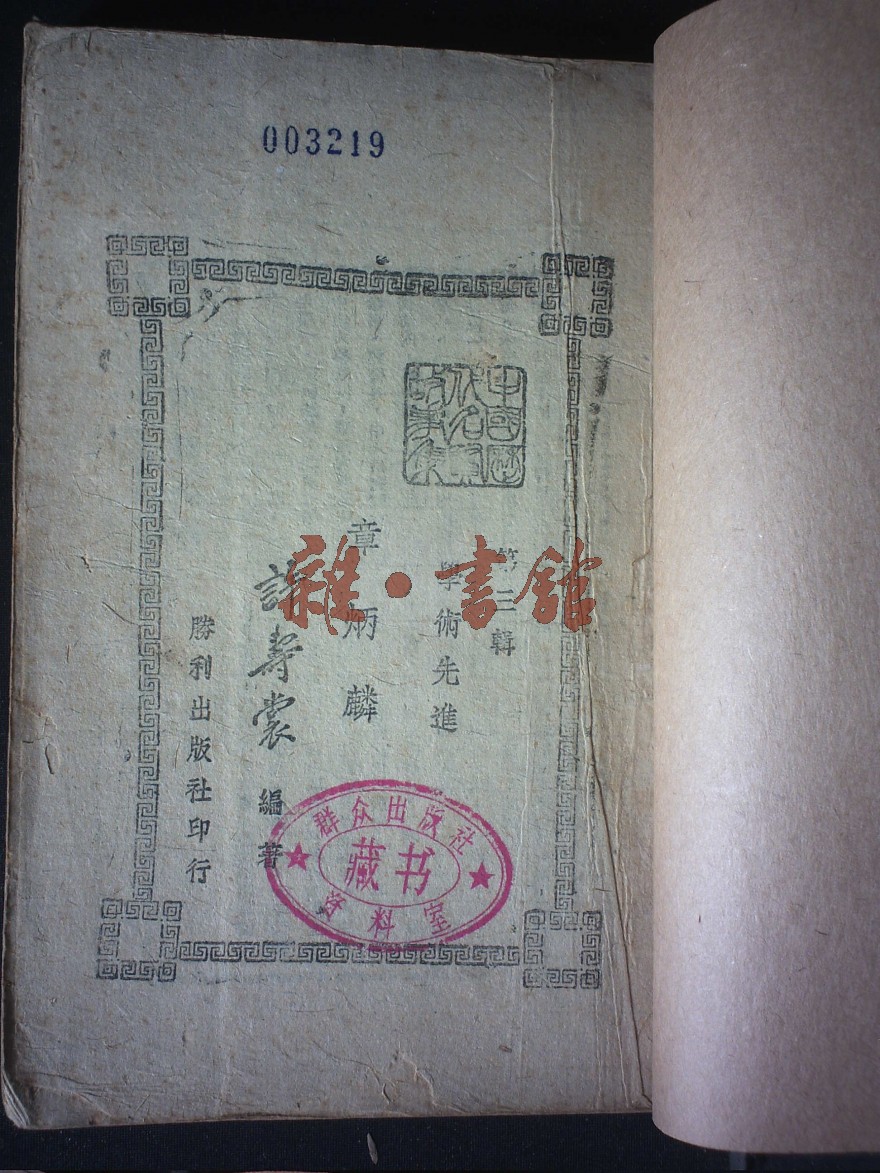 003219
中國歷
代名賢
故事集
第三輯
學術先進
章炳麟
許壽裳 編著
勝利出版社印行
雜·書館
群众出版社
藏书
资料室